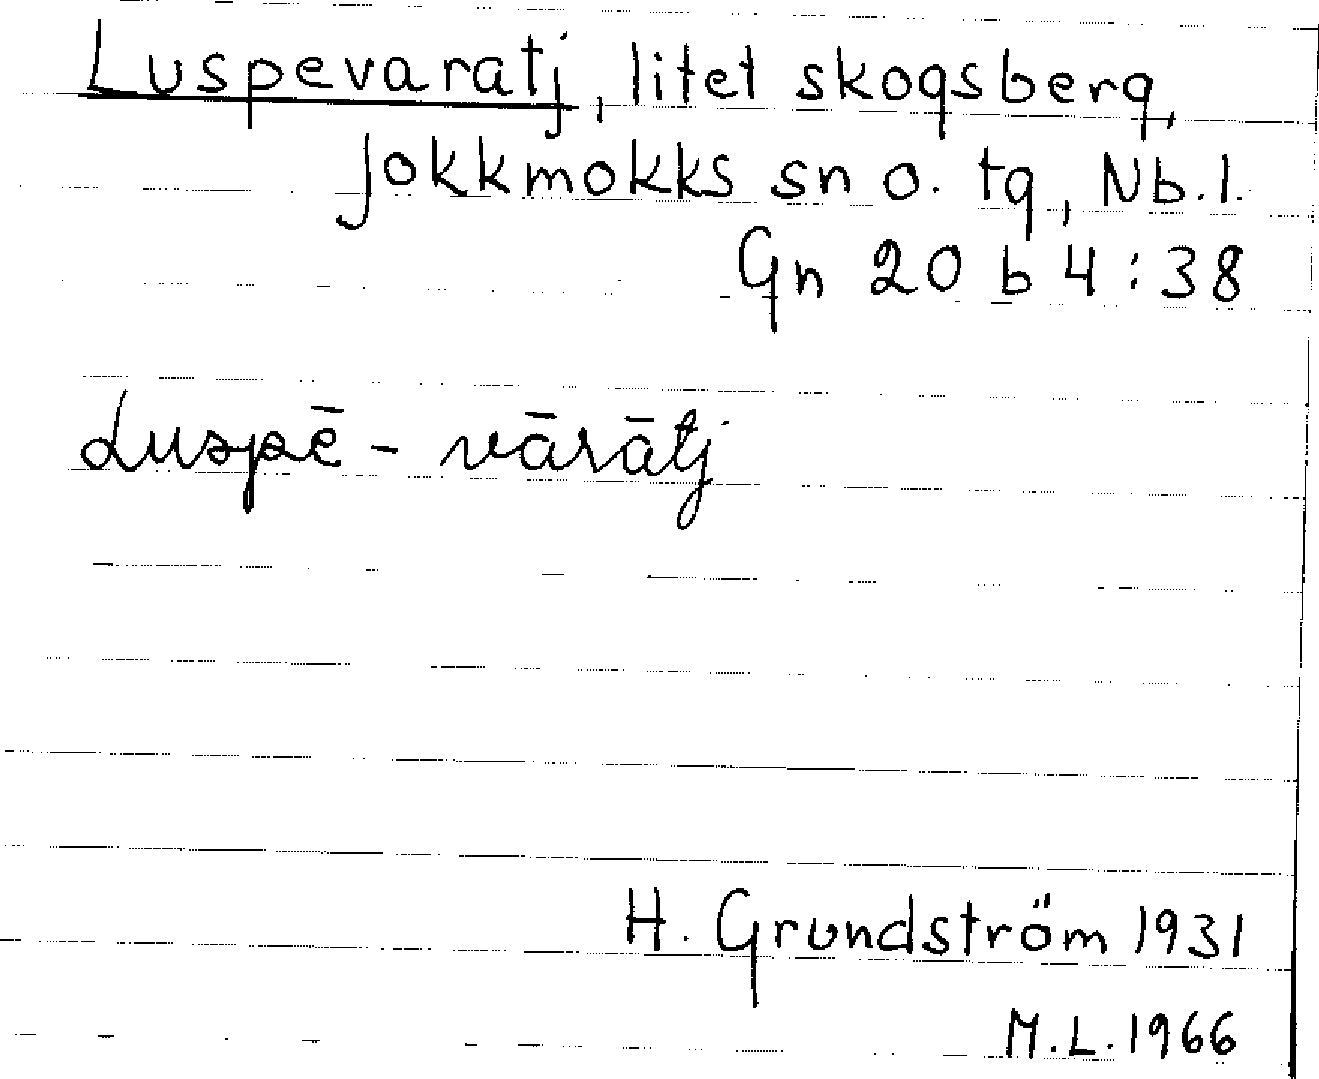 Luspevaratj, litet skogsberg,
Jokkmokks sn o. tg, Nb.l.
Gn 20 b 4:38
Luspē - vārātj
H. Grundström 1931
M.L. 1966